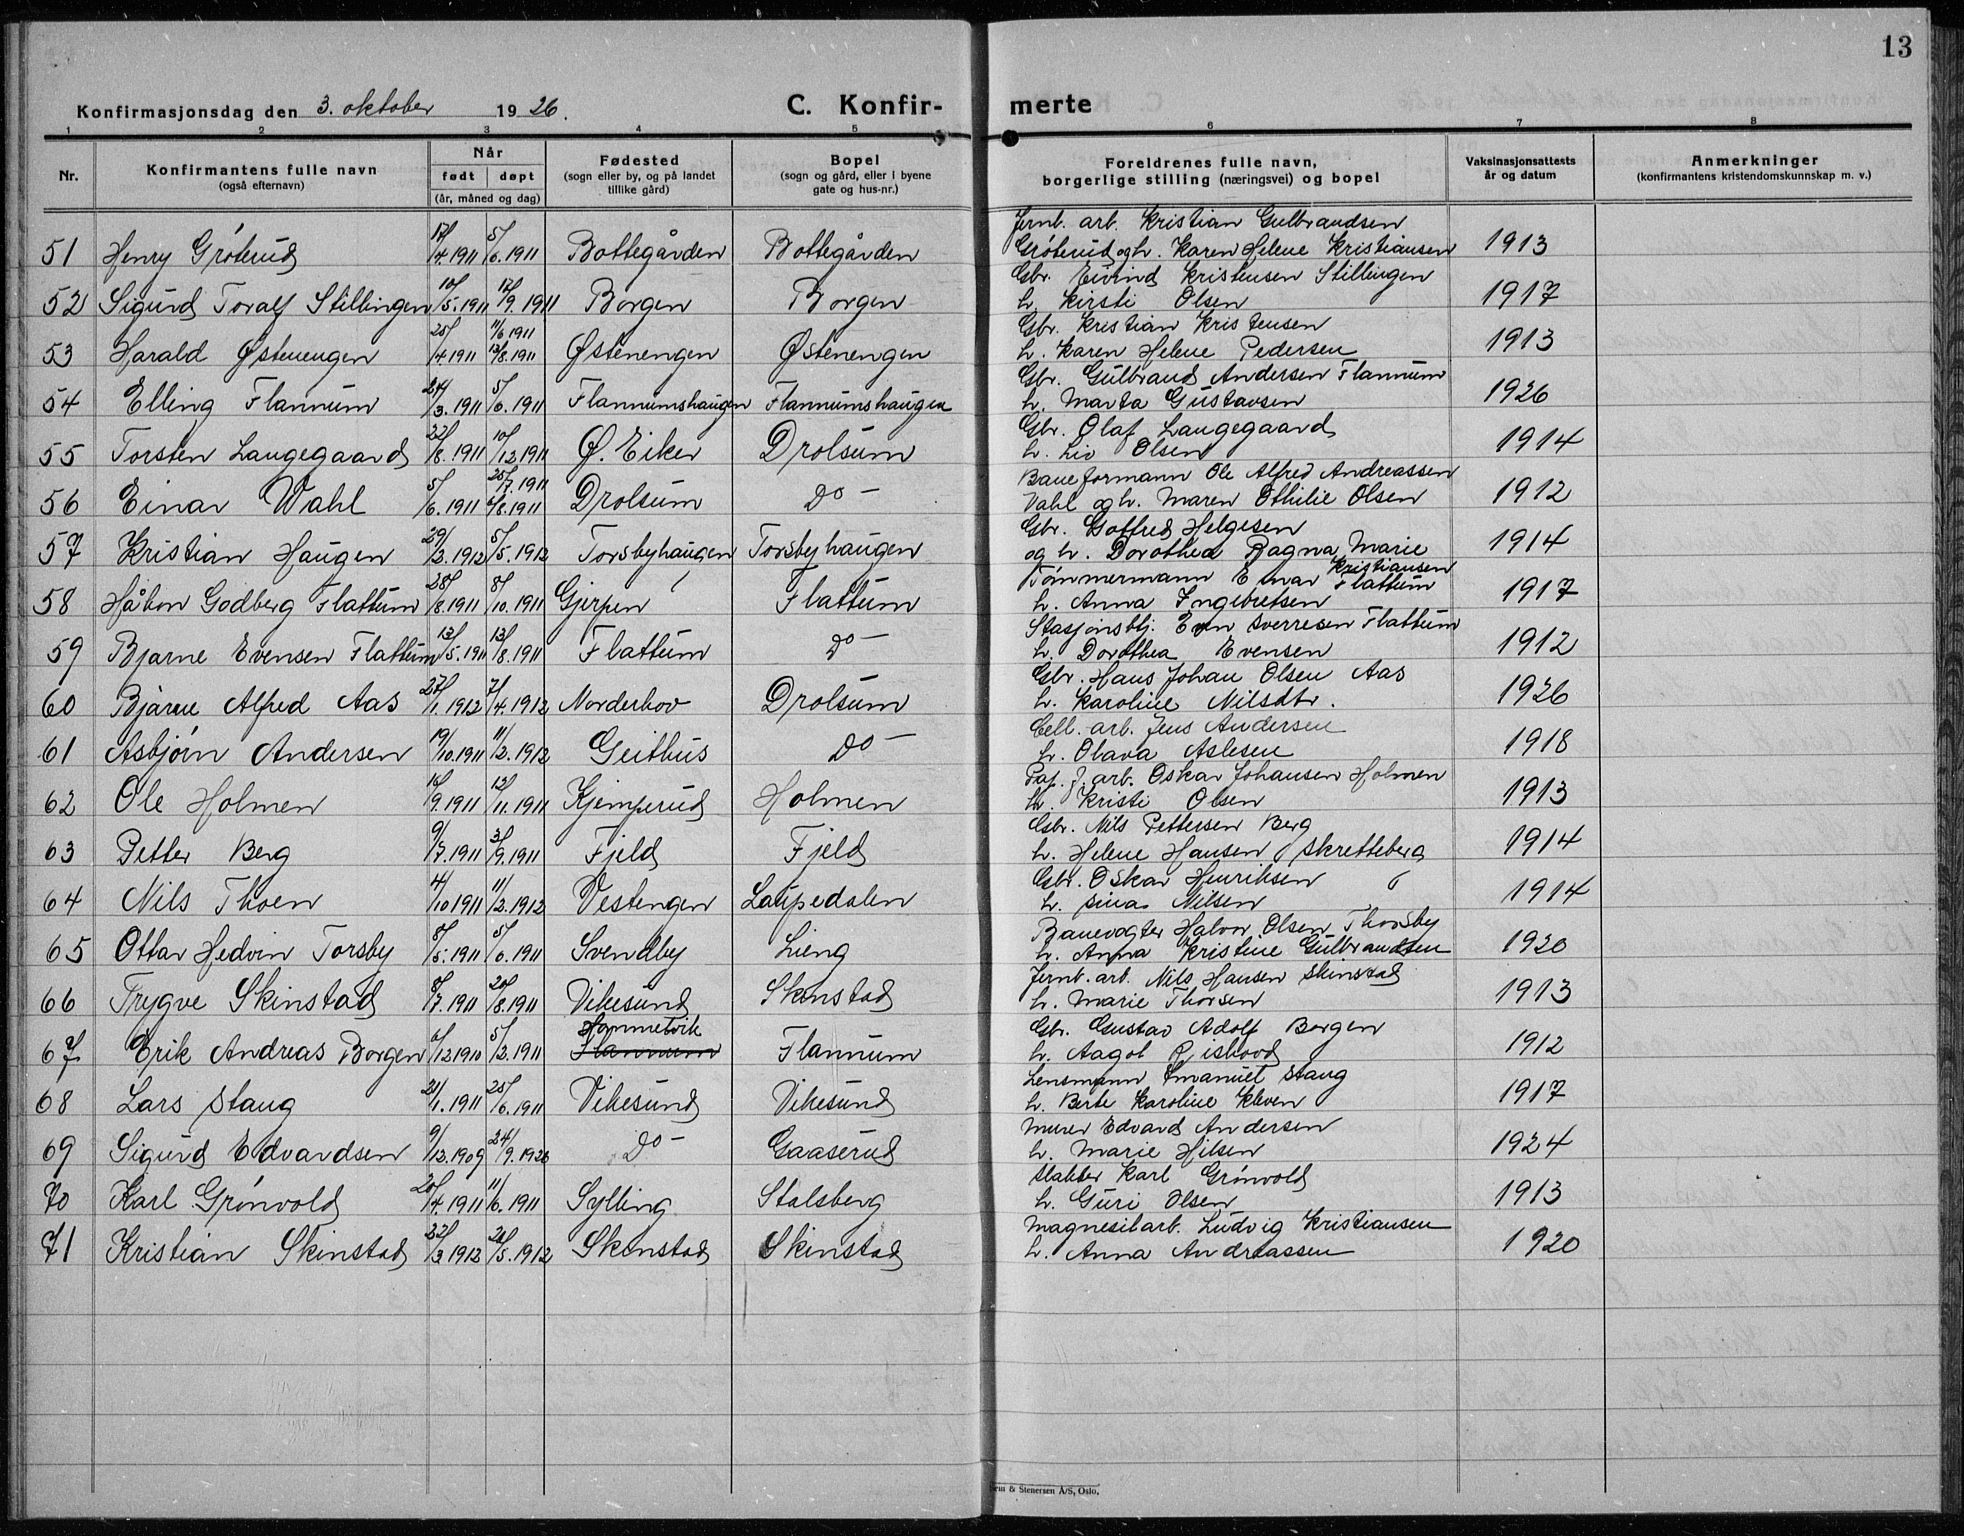 13
Konfirmasjonsdag den 3. oktober 1926. C. Konfirmerte
1 2 3 4 5 6 7 8
Nr. Konfirmantens fulle navn (også efternavn) Når født døpt (år, måned og dag) Fødested (sogn eller by, og på landet tillike gård) Bopel (sogn og gård, eller i byene gate og hus-nr.) Foreldrenes fulle navn, borgerlige stilling (næringsvei) og bopel Vaksinasjonsattests år og datum Anmerkninger (konfirmantens kristendomskunnskap m. v.)
51 Henry Gröterud 17/4.1911 5/6.1911 Bottegården Bottegården Jernb. arb. Kristian Gulbrandsen
Gröterud og h. Karen Helene Kristiansen 1913
52 Sigurd Toralf Stillingen 10/5.1911 17/9.1911 Borgen Borgen Gbr. Eivind Kristensen Stillingen
h. Kirsti Olsen 1917
53 Harald Østenengen 25/4.1911 11/6 1911 13/8.1911 Østenengen Østenengen Gbr. Kristian Kristensen
h. Karen Helene Pedersen 1913
54 Elling Flannum 24/3.1911 5/6.1911 Flannumshaugen Flannumshaugen Gbr. Gulbrand Andersen Flannum
h. Marta Gustavsen 1926
55 Torsten Langegaard 22/8.1911 10/12 1911 Ø. Eiker Drolsum Gbr. Olaf Langegaard
h. Liv Olsen 1914
56 Einar Wahl 5/6.1911 25/7.1911 6/8.1911 Drolsum Do — Baneformann Ole Alfred Andreassen
Vahl og h. Maren Othilie Olsen 1912
57 Kristian Haugen 29/2.1912 5/5.1912 Torsbyhaugen Torsbyhaugen Gbr. Gotfred Helgesen
og h. Dorothea Ragna Marie Kristiansen 1914
58 Håkon Godberg Flattum 28/8.1911 8/10.1911 Gjerpen Flattum Tömmermann Einar Flattum
h. Anna Ingebretsen 1917
59 Bjarne Evensen Flattum 13/5.1911 13/8.1911 Flattum Do — Stasjonsbtj. Even Sverresen Flattum
h. Dorothea Evensen 1912
60 Bjarne Alfred Aas 27/1.1912 7/4.1912 Norderhov Drolsum Gbr. Hans Johan Olsen Aas
h. Karoline Nilsdtr. 1926
61 Asbjörn Andersen 19/10.1911 11/2.1912 Geithus Do — Cell. arb. Jens Andersen
h. Olava Aslesen 1918
62 Ole Holmen 16/9.1911 12/11.1911 Kjemperud Holmen Pap. f. arb. Oskar Johansen Holmen
h. Kristi Olsen 1913
63 Petter Berg 9/7.1911 3/9.1911 Fjeld Fjeld Gbr. Nils Pettersen Berg
h. Helene Hansen Skretteberg 1914
64 Nils Thoen 4/10 1911 11/2.1912 Vestengen Laupedalen Gbr. Oskar Henriksen
h. Sina Nilsen 1914
65 Ottar Hedvin Torsby 8/5.1911 5/6.1911 Svendby Lieng Banevogter Halvor Olsen Thorsby
h. Anna Kristine Gulbrandsen 1920
66 Trygve Skinstad 8/7.1911 20/8.1911 Vikesund Skinstad Jernb. arb. Nils Hansen Skinstad
h. Marie Thorsen 1913
67 Erik Andreas Borgen 6/12 1910 5/2.1911 Hommelvik Flannum Flannum Gbr. Gustav Adolf Borgen
h. Aagot Rishovd 1912
68 Lars Staug 21/1.1911 25/6.1911 Vikesund Vikesund Lensmann Emanuel Staug
h. Berte Karoline Kleven 1917
69 Sigurd Edvardsen 9/12.1909 24/9.1926 Do — Gaaserud Murer Edvard Andersen
h. Marie Hilsen 1924
70 Karl Grönvold 20/4.1911 11/6.1911 Sylling Stalsberg Slakter Karl Grönvold
h. Guri Olsen 1913
71 Kristian Skinstad 22/3 1912 26/5.1912 Skinstad Skinstad Magnesitarb. Ludvig Kristiansen
h. Anna Andreassen 1920
Sem & Stenersen A/S, Oslo.